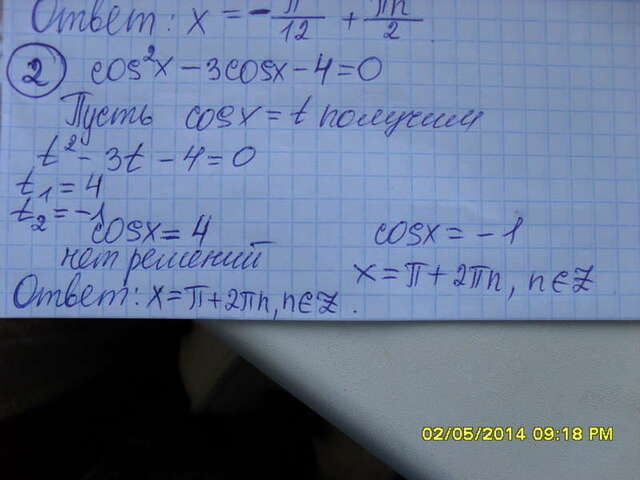 Ответ: x = -π/12 + πn/2.
2 cos²x - 3cosx - 4 = 0
Пусть cosx = t получим
t² - 3t - 4 = 0
t₁ = 4
t₂ = -1
cosx = 4
нет решений
cosx = -1
x = π + 2πn, n∈Z
Ответ: x = π + 2πn, n∈Z.
02/05/2014 09:18 PM